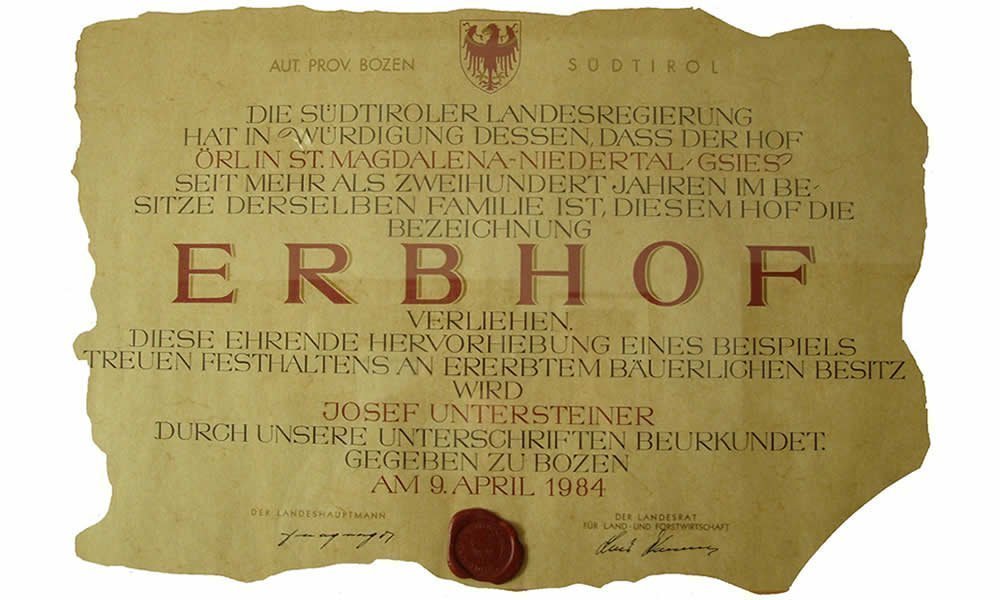 AUT. PROV. BOZEN SÜDTIROL
DIE SÜDTIROLER LANDESREGIERUNG
HAT IN WÜRDIGUNG DESSEN, DASS DER HOF
ÖRL IN ST. MAGDALENA-NIEDERTAL-GSIES
SEIT MEHR ALS ZWEIHUNDERT JAHREN IM BE-
SITZE DERSELBEN FAMILIE IST, DIESEM HOF DIE
BEZEICHNUNG
ERBHOF
VERLIEHEN.
DIESE EHRENDE HERVORHEBUNG EINES BEISPIELS
TREUEN FESTHALTENS AN ERERBTEM BÄUERLICHEN BESITZ
WIRD
JOSEF UNTERSTEINER
DURCH UNSERE UNTERSCHRIFTEN BEURKUNDET.
GEGEBEN ZU BOZEN
AM 9. APRIL 1984
DER LANDESHAUPTMANN
DER LANDESRAT
FÜR LAND- UND FORSTWIRTSCHAFT